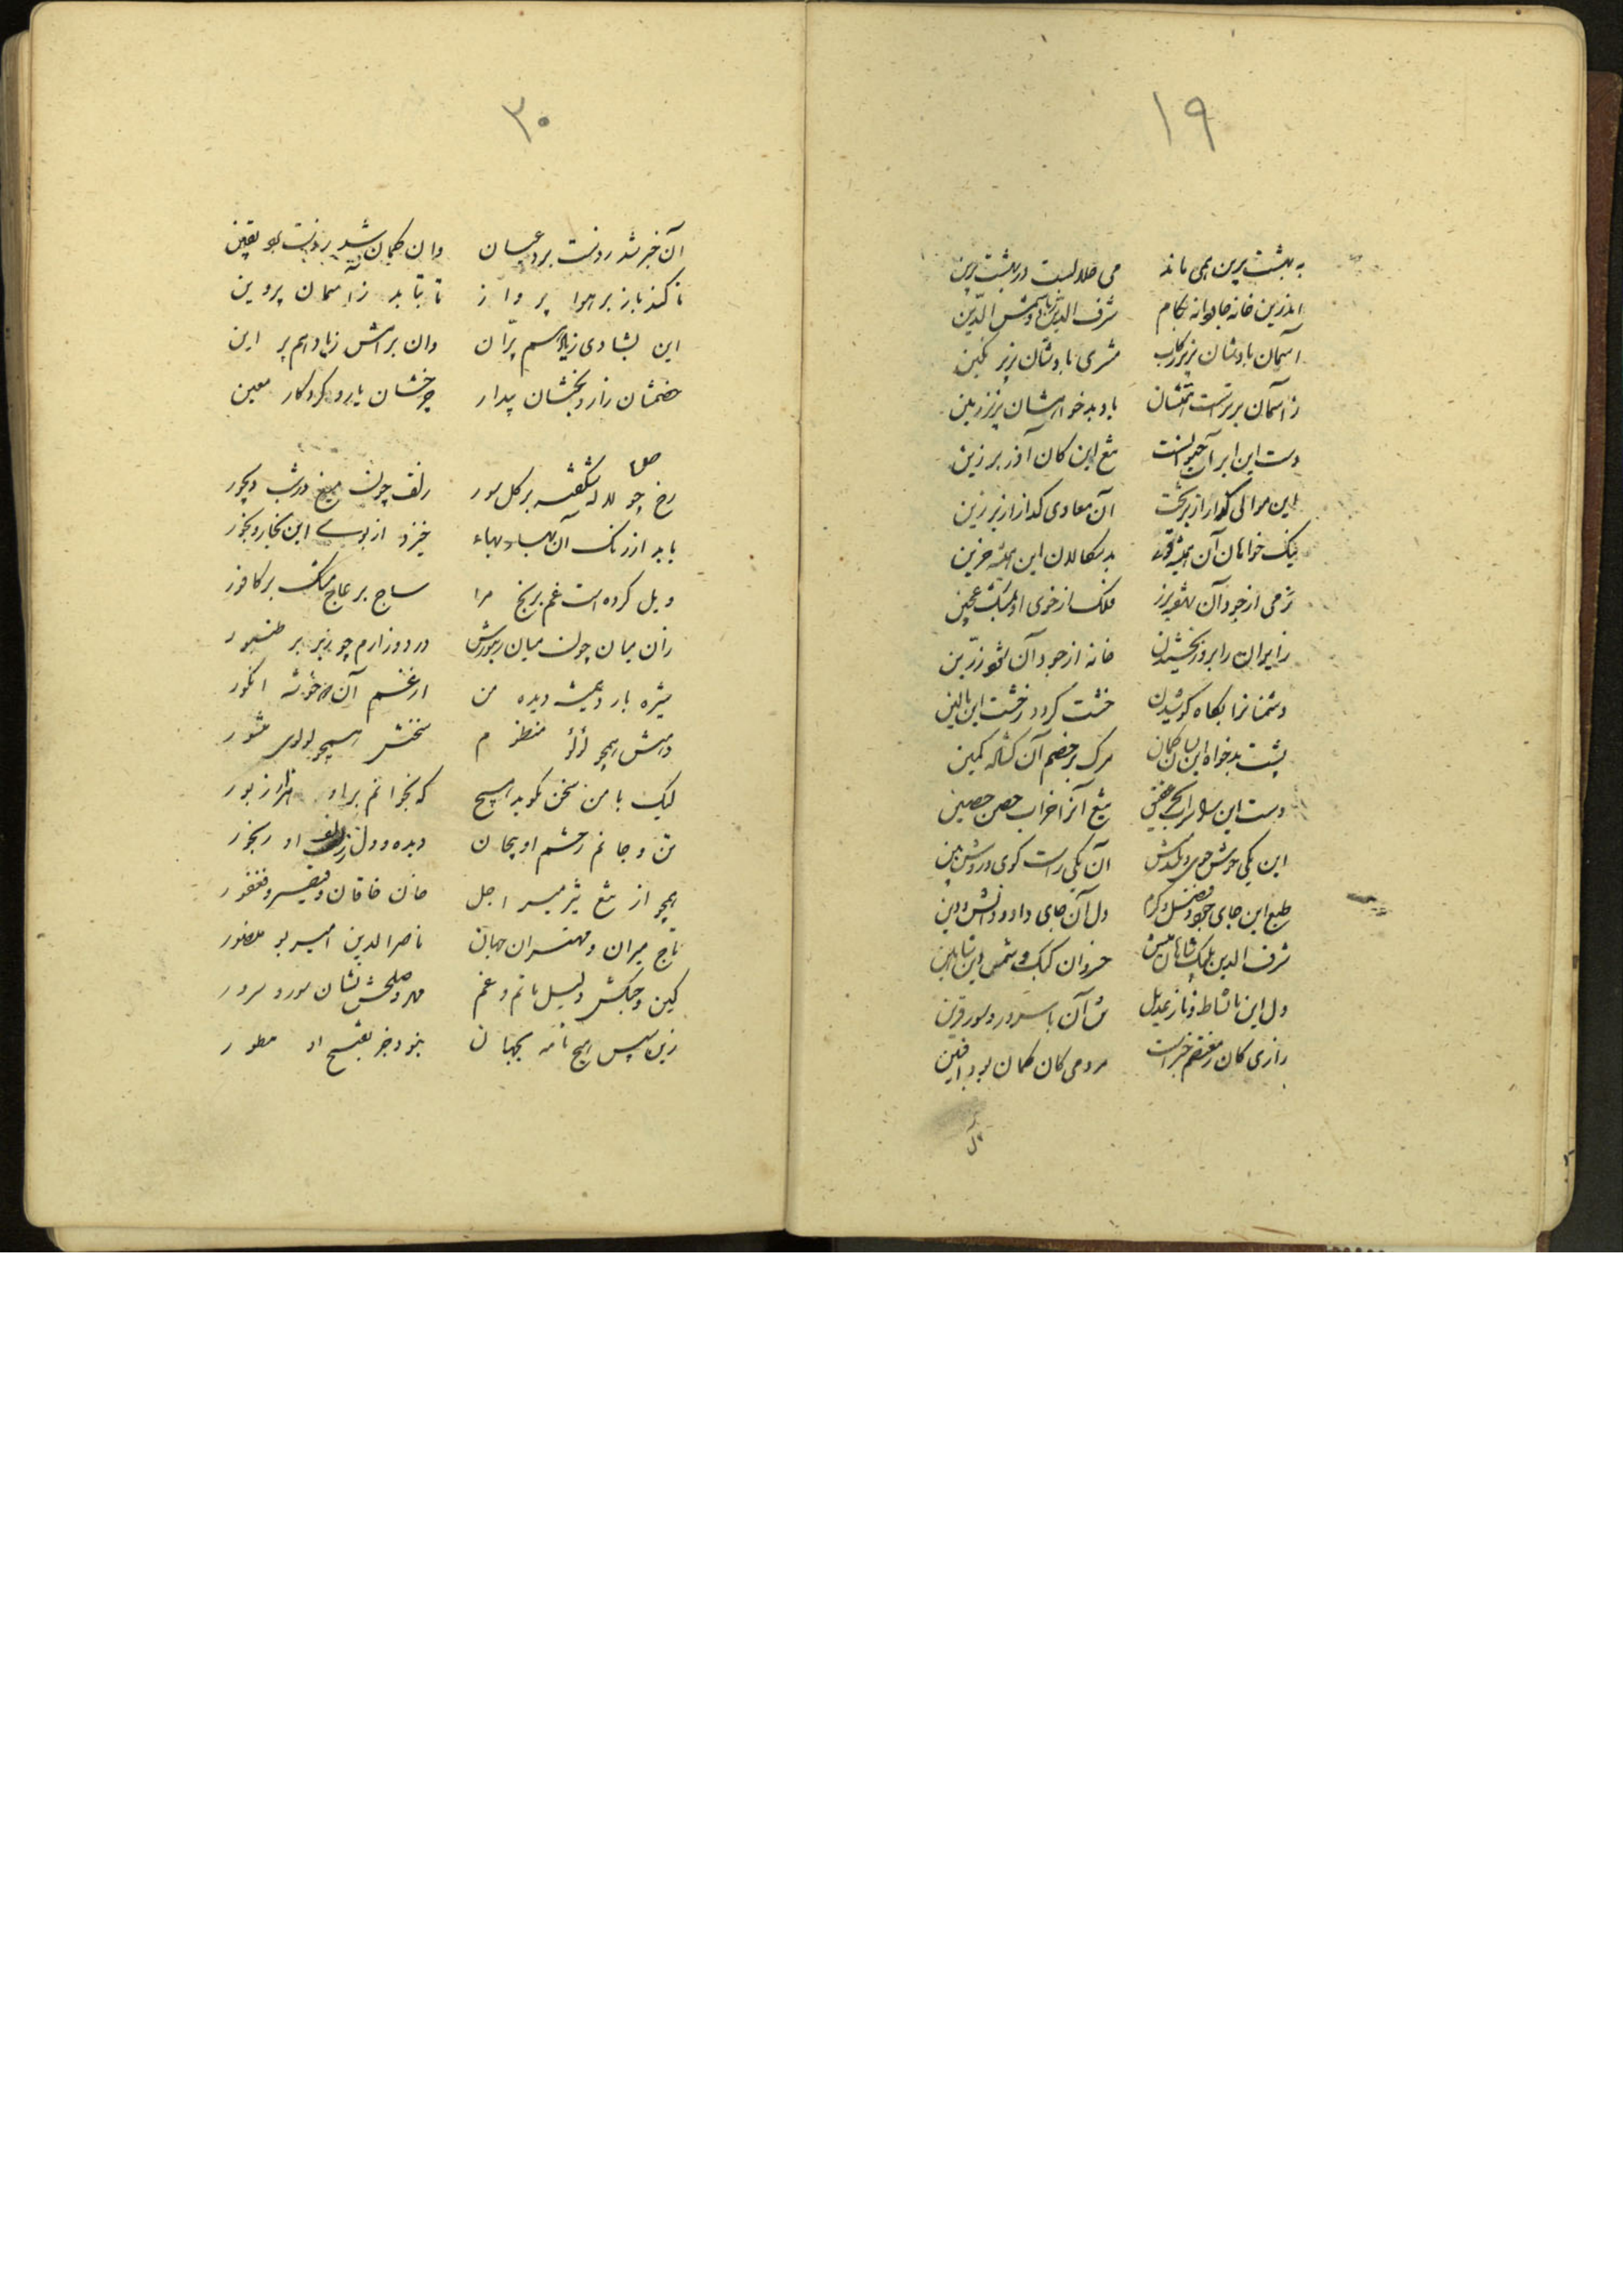 ۱۹
به بهشت برین همی ماند می حلالست در بهشت برین
اندرین خانه جاودانه بکام شرف الدین باد و شمس الدین
آسمان بادشان بزیر رکاب مشتری بادشان بزیر نگین
ز آسمان برتر است همتشان باد بدخواهشان بزیر زمین
دست این ابر آب حیوانست تیغ این کان آذر برزین
این موالی گذار از بر تخت آن معادی گداز از بر زین
نیک خواهان آن همیشه بدسگالان این همیشه حزین
ترمی از جود آن فلک از خوی او بمشک عجین
زایران را بروز بخشیدن خانه از جود آن شود زرین
دشمنانرا بگاه کوشیدن خشت گردد ز خشت این بالین
پشت بدخواه این بسان کمان مرگ بر خصم آن گشاده کمین
دست این تیغ آنرا خراب حصن حصین
این یکی خوش خوی و آن یکی راست گوی و روشن بین
طبع این جای جود و فضل و کرم دل آن جای داد و دانش و دین
شرف الدین پلنگ و شاهان میش خسروان کبک و شمس دین شاهین
دل این با نشاط و ناز عدیل تن آن با سرور و سور قرین
رازی کان ز معتصم خبر است مردمی کان گمان بود ز افشین
۳۰
آن خبر شد ز دست برد عیان وان گمان شد بدست بو یقین
تا کند باز بر هوا پرواز تا بتابد ز آسمان پروین
این بشادی زیاد هم بر آن وان برامش زیاد هم بر این
خصمشان زار و بختشان بیدار چرخشان یار و کردگار معین
رخ چو لاله شکفته بر گل سور زلف چون میغ در شب دیجور
یابد از رنگ آن بها خیزد از بوی این بخار بخور
ویل کرده است غم برنج مرا ساج بر عاج مشک بر کافور
زان میان چون میان زنبورش درد و زارم چو زیر بر طنبور
شیره بارد همیشه دیده من از غم آن دو خوشه انگور
دهنش همچو لؤلؤ منظوم سخنش همچو لولوی منثور
لیک با من سخن نگوید هیچ که بخوانم بر او هزار زبور
تن و جانم ز چشم او پیچان دیده و دل ز زلف او رنجور
همچو از تیغ تیز میر اجل جان خاقان و قیصر و فغفور
تاج میران و مهتران جهان ناصرالدین امیر بو منصور
کین و جنگش دلیل ماتم و غم مهر و صلحش نشان سور و سرور
زین سپس هیچ نامه بجهان نبود جز بفتح او مطور